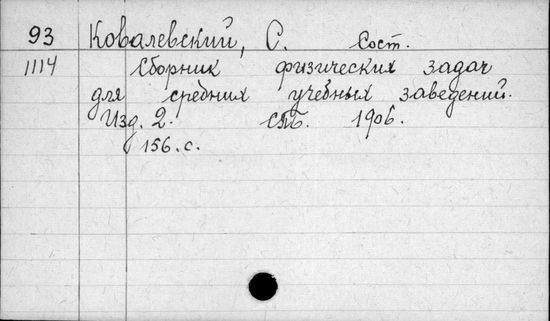 93 Ковалевский, С. Сост.
1114 Сборник физических задач
для средних учебных заведений.
Изд. 2. СПБ. 1906.
156. с.